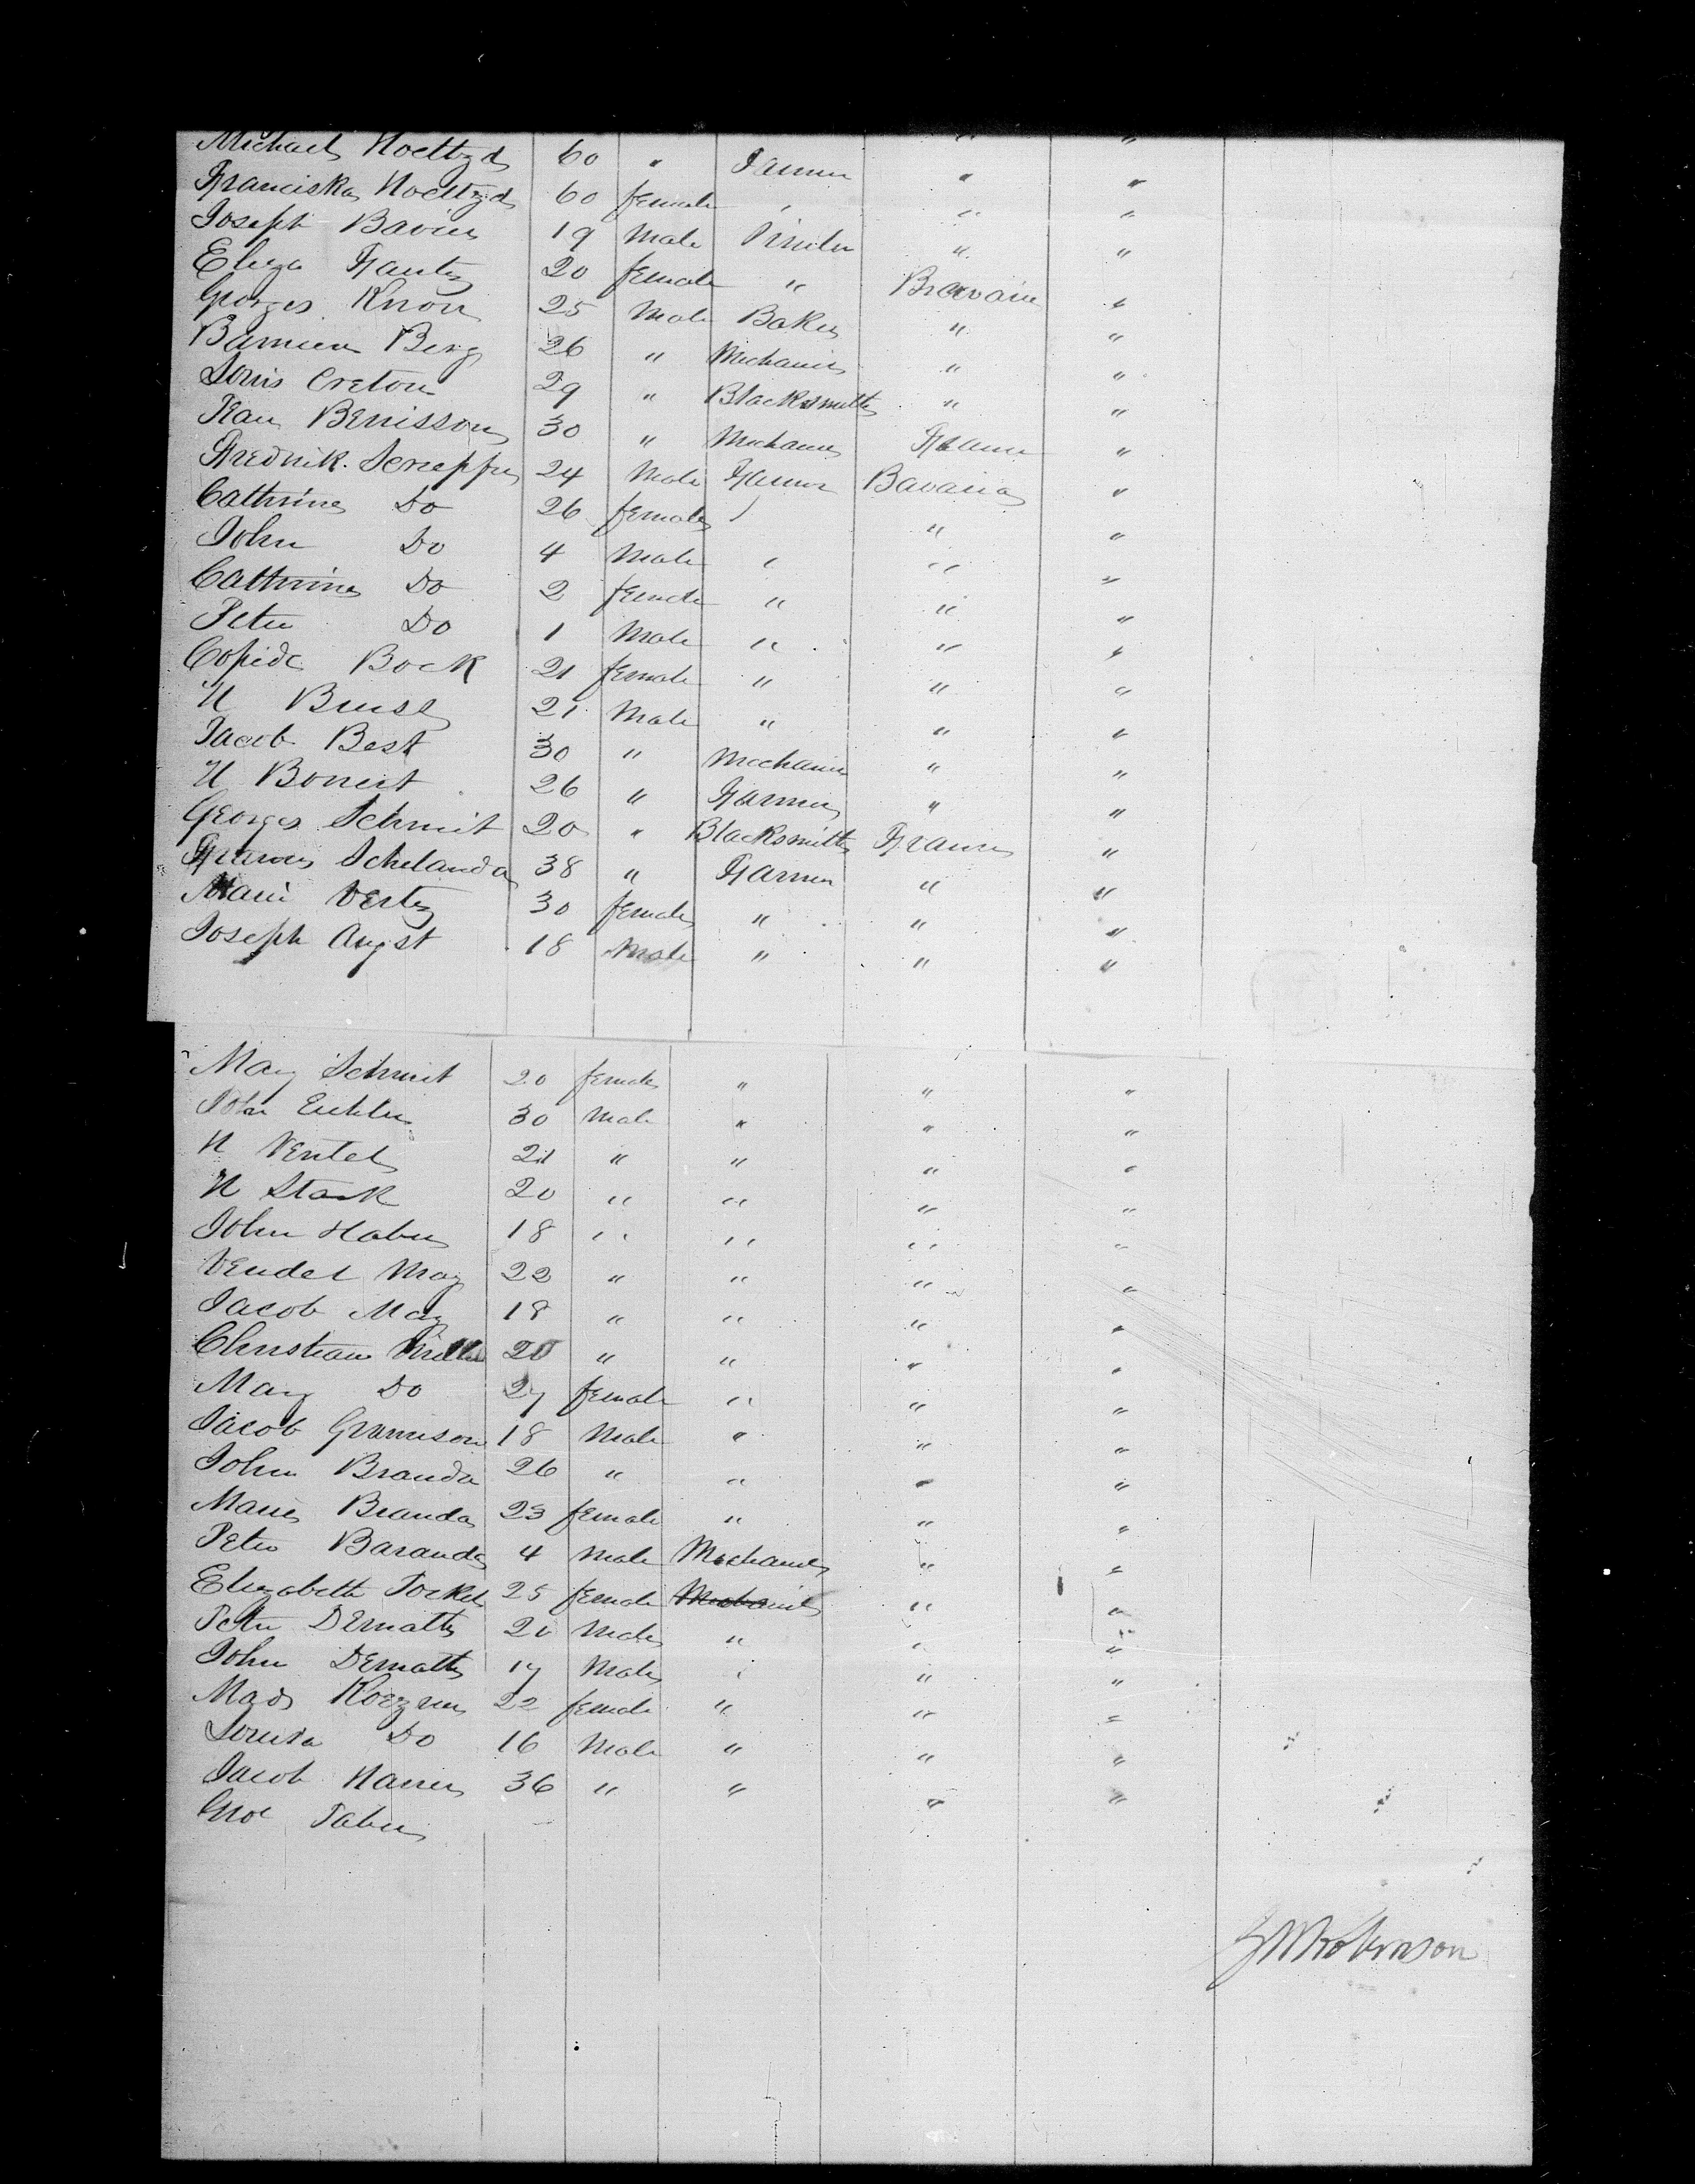 Michael Noeltzd 60 " Farmer " "
Franciska Noeltzd 60 female " " "
Joseph Bavier 19 Male " "
Eliza Kautz 20 female " Bravaria "
Georges Knon 25 Male Baker " "
Berg 26 " Mechanic " "
Louis Creton 29 " Blacksmith " "
Jean Benisson 30 " Mechanic France "
Fredrik 24 Male Farmer Bavaria "
Cathrine Do 26 female " "
John Do 4 Male " " "
Cathrine Do 2 female " " "
Peter Do 1 Male " " "
Bock 21 female " " "
N 21 Male " " "
Jacob Best 30 " Mechanic " "
N Bonert 26 " Farmer " "
Georges Schmit 20 " Blacksmith France "
Schelanda 38 " Farmer " "
Marie Vertz 30 female " " "
Joseph Augst 18 Male " " "
Mary Schmit 20 female " " "
John 30 Male " " "
N Ventel 21 " " " "
N Stark 20 " " " "
John Haber 18 " " " "
Vendel May 22 " " " "
Jacob May 18 " " " "
Christian Miller 20 " " " "
Mary Do 27 female " " "
Jacob Gramison 18 Male " " "
John Branda 26 " " " "
Marie Branda 23 female " " "
Peter Baranda 4 Male Mechanic " "
Elizabeth Tockel 25 female Mechanic " "
Peter Dematte 20 Male " " "
John Dematte 17 Male " " "
22 female " " "
Do 16 Male " " "
Jacob 36 " " " "
Faber
Robinson